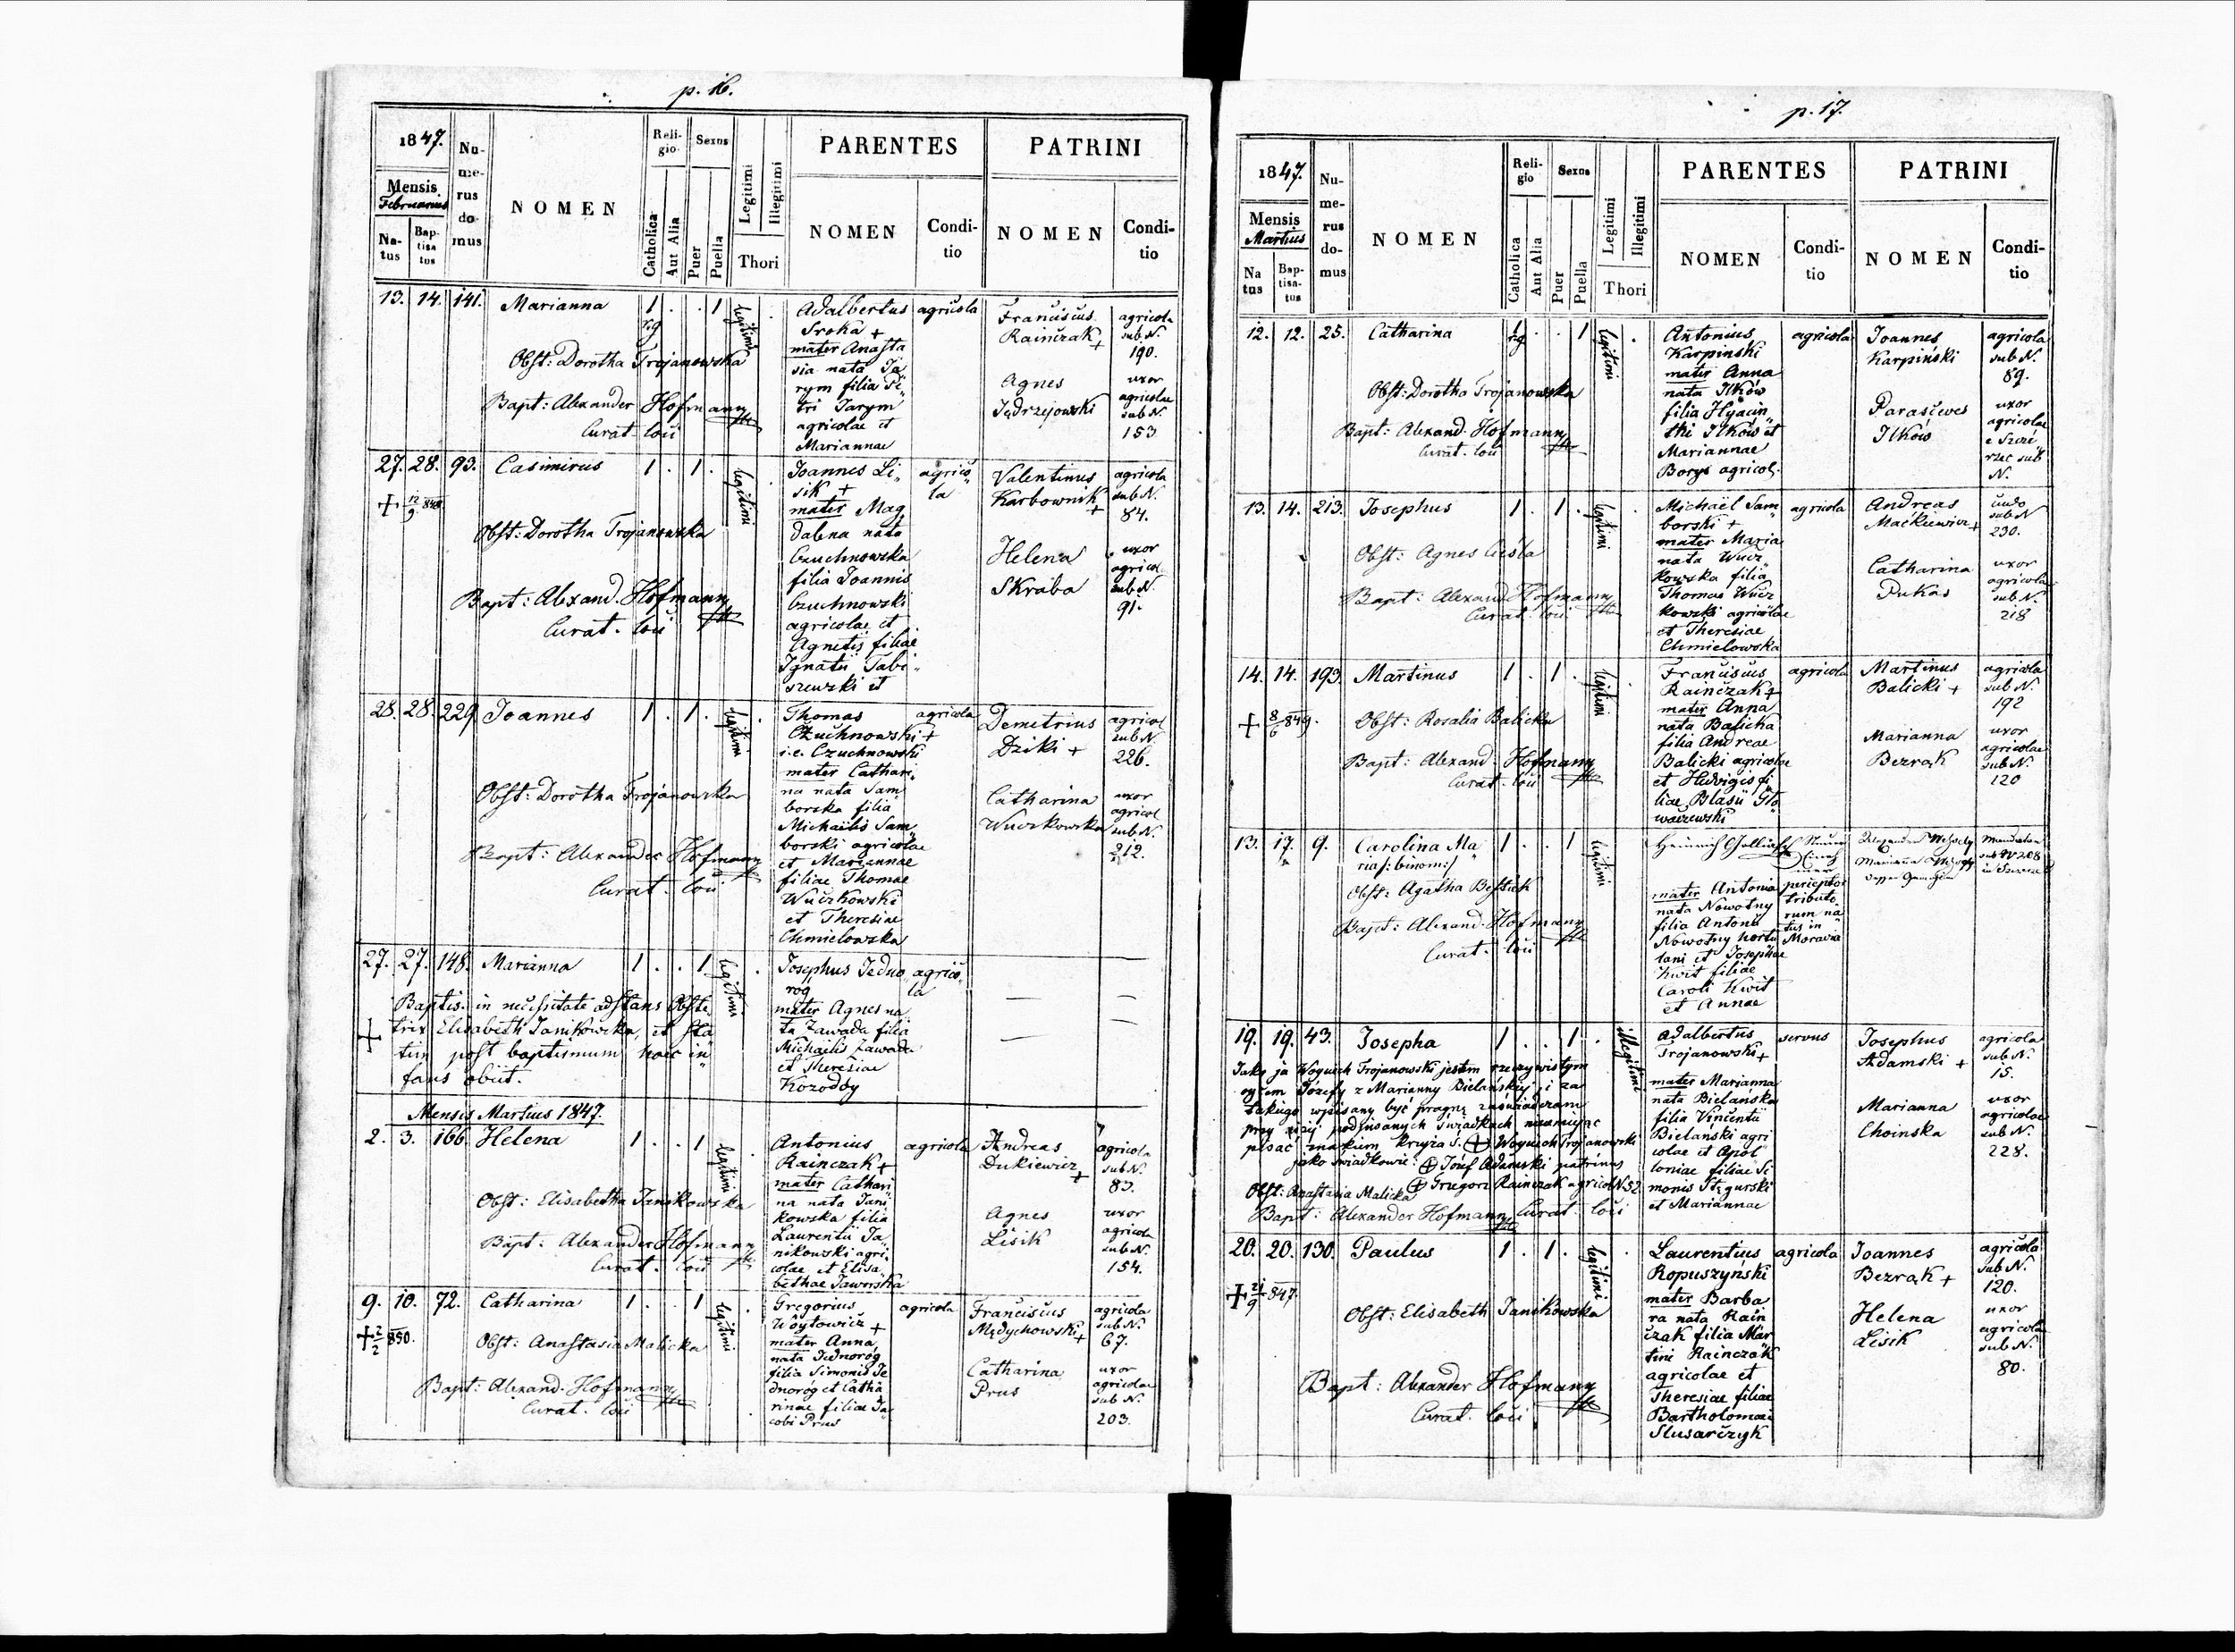 p. 16.
1847.
Mensis
Februarius
Na-
tus
Bap-
tisa
tus
Nu-
me-
rus
do-
mus
NOMEN
Reli-
gio
Catholica
Aut Alia
Sexus
Puer
Puella
Legitimi
Illegitimi
Thori
PARENTES
NOMEN
Condi-
tio
PATRINI
NOMEN
Condi-
tio
13. 14. 141. Marianna 1 . . 1 legitimi .
rg
Obst: Dorotha Trojanowska
Bapt: Alexander Hofmann
Curat. loci
Adalbertus
Sroka +
mater Anasta
sia nata Ja
rym filia Pe
tri Jarym
agricolae et
Mariannae
agricola
Franciscus
Rainczak +
agricola
sub N.
190.
Agnes
Jędrzejowski
uxor
agricolae
sub N
153
27. 28. 93. Casimirus 1 . 1 . legitimi
+ 12/9 848
Obst: Dorotha Trojanowska
Bapt: Alexand. Hofmann
Curat. loci
Joannes Li„
sik +
mater Mag
dalena nata
Czuchnowska
filia Joannis
Czuchnowski
agricolae et
Agnetis filiae
Ignatii Tabi„
szewski et
agrico„
la
Valentinus
Karbownik +
agricola
sub N.
84.
Helena
Skraba
uxor
agricol
sub N.
91.
28. 28. 229. Joannes 1 . 1 . legitimi .
Obst: Dorotha Trojanowska
Bapt: Alexander Hofmann
Curat. loci
Thomas
Czuchnowski +
i.e. Czuchnowski
mater Cathari„
na nata Sam
borska filia
Michaelis Sam
borski agricolae
et Mariannae
filiae Thomae
Wuczkowski
et Theresiae
Chmielowska
agricola
Demetrius
Dziki +
agricol
sub N.
226.
Catharina
Wuczkowska
uxor
agricol
sub N.
212.
27. 27. 148. Marianna 1 . . 1 legitimi .
Baptis. in necessitate adstans Obste
trix Elisabeth Janikowska, et sta
tim post baptismum haec in
fans obiit.
+
Josephus Jedno
rog
mater Agnes na
ta Zawada filia
Michaelis Zawada
et Theresiae
Kozodoy
agrico„
la
Mensis Martius 1847.
2. 3. 166. Helena 1 . . 1 legitimi
Obst: Elisabetha Janikowska
Bapt: Alexander Hofmann
Curat. loci
Antonius
Rainczak +
mater Cathari
na nata Jani
kowska filia
Laurentii Ja
nikowski agri
colae et Elisa
bethae Jaworska
agricola
Andreas
Dukiewicz +
agricola
sub N.
83.
Agnes
Lisik
uxor
agricola
sub N.
154.
9. 10. 72. Catharina 1 . . 1 legitimi .
+ 2/2 850.
Obst: Anastasia Malicka
Bapt: Alexand. Hofmann
Curat. loci
Gregorius
Woytowicz +
mater Anna
nata Jednoróg
filia Simonis Je
dnoróg et Catha
rinae filiae Ja
cobi Prus
agricola
Franciscus
Mędychowski +
agricola
sub N.
67.
Catharina
Prus
uxor
agricolae
sub N.
203.
p. 17.
1847.
Mensis
Martius
Na
tus
Bap-
tisa-
tus
Nu-
me-
rus
do-
mus
NOMEN
Reli-
gio
Catholica
Aut Alia
Sexus
Puer
Puella
Legitimi
Illegitimi
Thori
PARENTES
NOMEN
Condi-
tio
PATRINI
NOMEN
Condi-
tio
12. 12. 25. Catharina 1 . . 1 legitimi .
rg
Obst: Dorotha Trojanowska
Bapt: Alexand. Hofmann
Curat. loci
Antonius
Karpinski
mater Anna
nata Ilków
filia Hyacin
thi Ilków et
Mariannae
Borys agricol.
agricola
Joannes
Karpiński
agricola
sub N.
89.
Parasceves
Ilków
uxor
agricolae
e Szcze
rzec sub
N.
13. 14. 213. Josephus 1 . 1 . legitimi .
Obst: Agnes Cieśla
Bapt: Alexand Hofmann
Curat. loci
Michaël Sam
borski +
mater Maria
nata Wucz
kowska filia
Thomas Wucz
kowski agricolae
et Theresiae
Chmielowska
agricola
Andreas
Maćkiewicz +
sub N
230.
Catharina
Pukas
uxor
agricola
sub N.
218
14. 14. 193. Martinus 1 . 1 . legitimi .
+ 8/6 849.
Obst: Rosalia Balicka
Bapt: Alexand. Hofmann
Curat. loci
Franciscus
Rainczak +
mater Anna
nata Balicka
filia Andreae
Balicki agricolae
et Hedvigis fi
liae Blasii Gło
waczewski
agricola
Martinus
Balicki +
agricola
sub N.
192
Marianna
Bezrąk
uxor
agricolae
sub N.
120
13. 17. 9. Carolina Ma
ria /: binom :/ 1 . . 1 legitimi
Obst: Agatha
Bapt: Alexand. Hofmann
Curat. loci
Heinrich
mater Antonia
nata Nowotny
filia Antonii
Nowotny hortu
lani et Josephae
Kwit filiae
Caroli Kwit
et Annae
perceptor
tributo
rum na
tus in
Moravia
sub N 208
19. 19. 43. Josepha 1 . . 1 . illegitimi
Jako ja Woyciech Trojanowski jestem rzeczywistym
oycem Józefy z Marianny Bielańskiej i za
takiego wpisany być pragnę zaświadczam
przy niżej podpisanych świadkach nieumiejąc
pisać znakiem krzyża S. + Woyciech Trojanowski
jako świadkowie: + Józef Adamski patrinus
+ Grzegorz Rainczak agricol N. 52
Obst: Anastasia Malicka
Bapt: Alexander Hofmann Curat loci
Adalbertus
Trojanowski +
mater Marianna
nata Bielanska
filia Vincentii
Bielanski agri
colae et Apol
loniae filiae Si
monis Stęgurski
et Mariannae
servus
Josephus
Adamski +
agricola
sub N.
15.
Marianna
Choinska
uxor
agricolae
sub N.
228.
20. 20. 130. Paulus 1 . 1 . legitimi .
+ 21/9 847.
Obst: Elisabeth Janikowska
Bapt: Alexander Hofmann
Curat. loci
Laurentius
Ropuszyński
mater Barba
ra nata Rain
czak filia Mar
tini Rainczak
agricolae et
Theresiae filiae
Bartholomaei
Slusarczyk
agricola
Joannes
Bezrąk +
agricola
sub N.
120.
Helena
Lisik
uxor
agricola
sub N.
80.